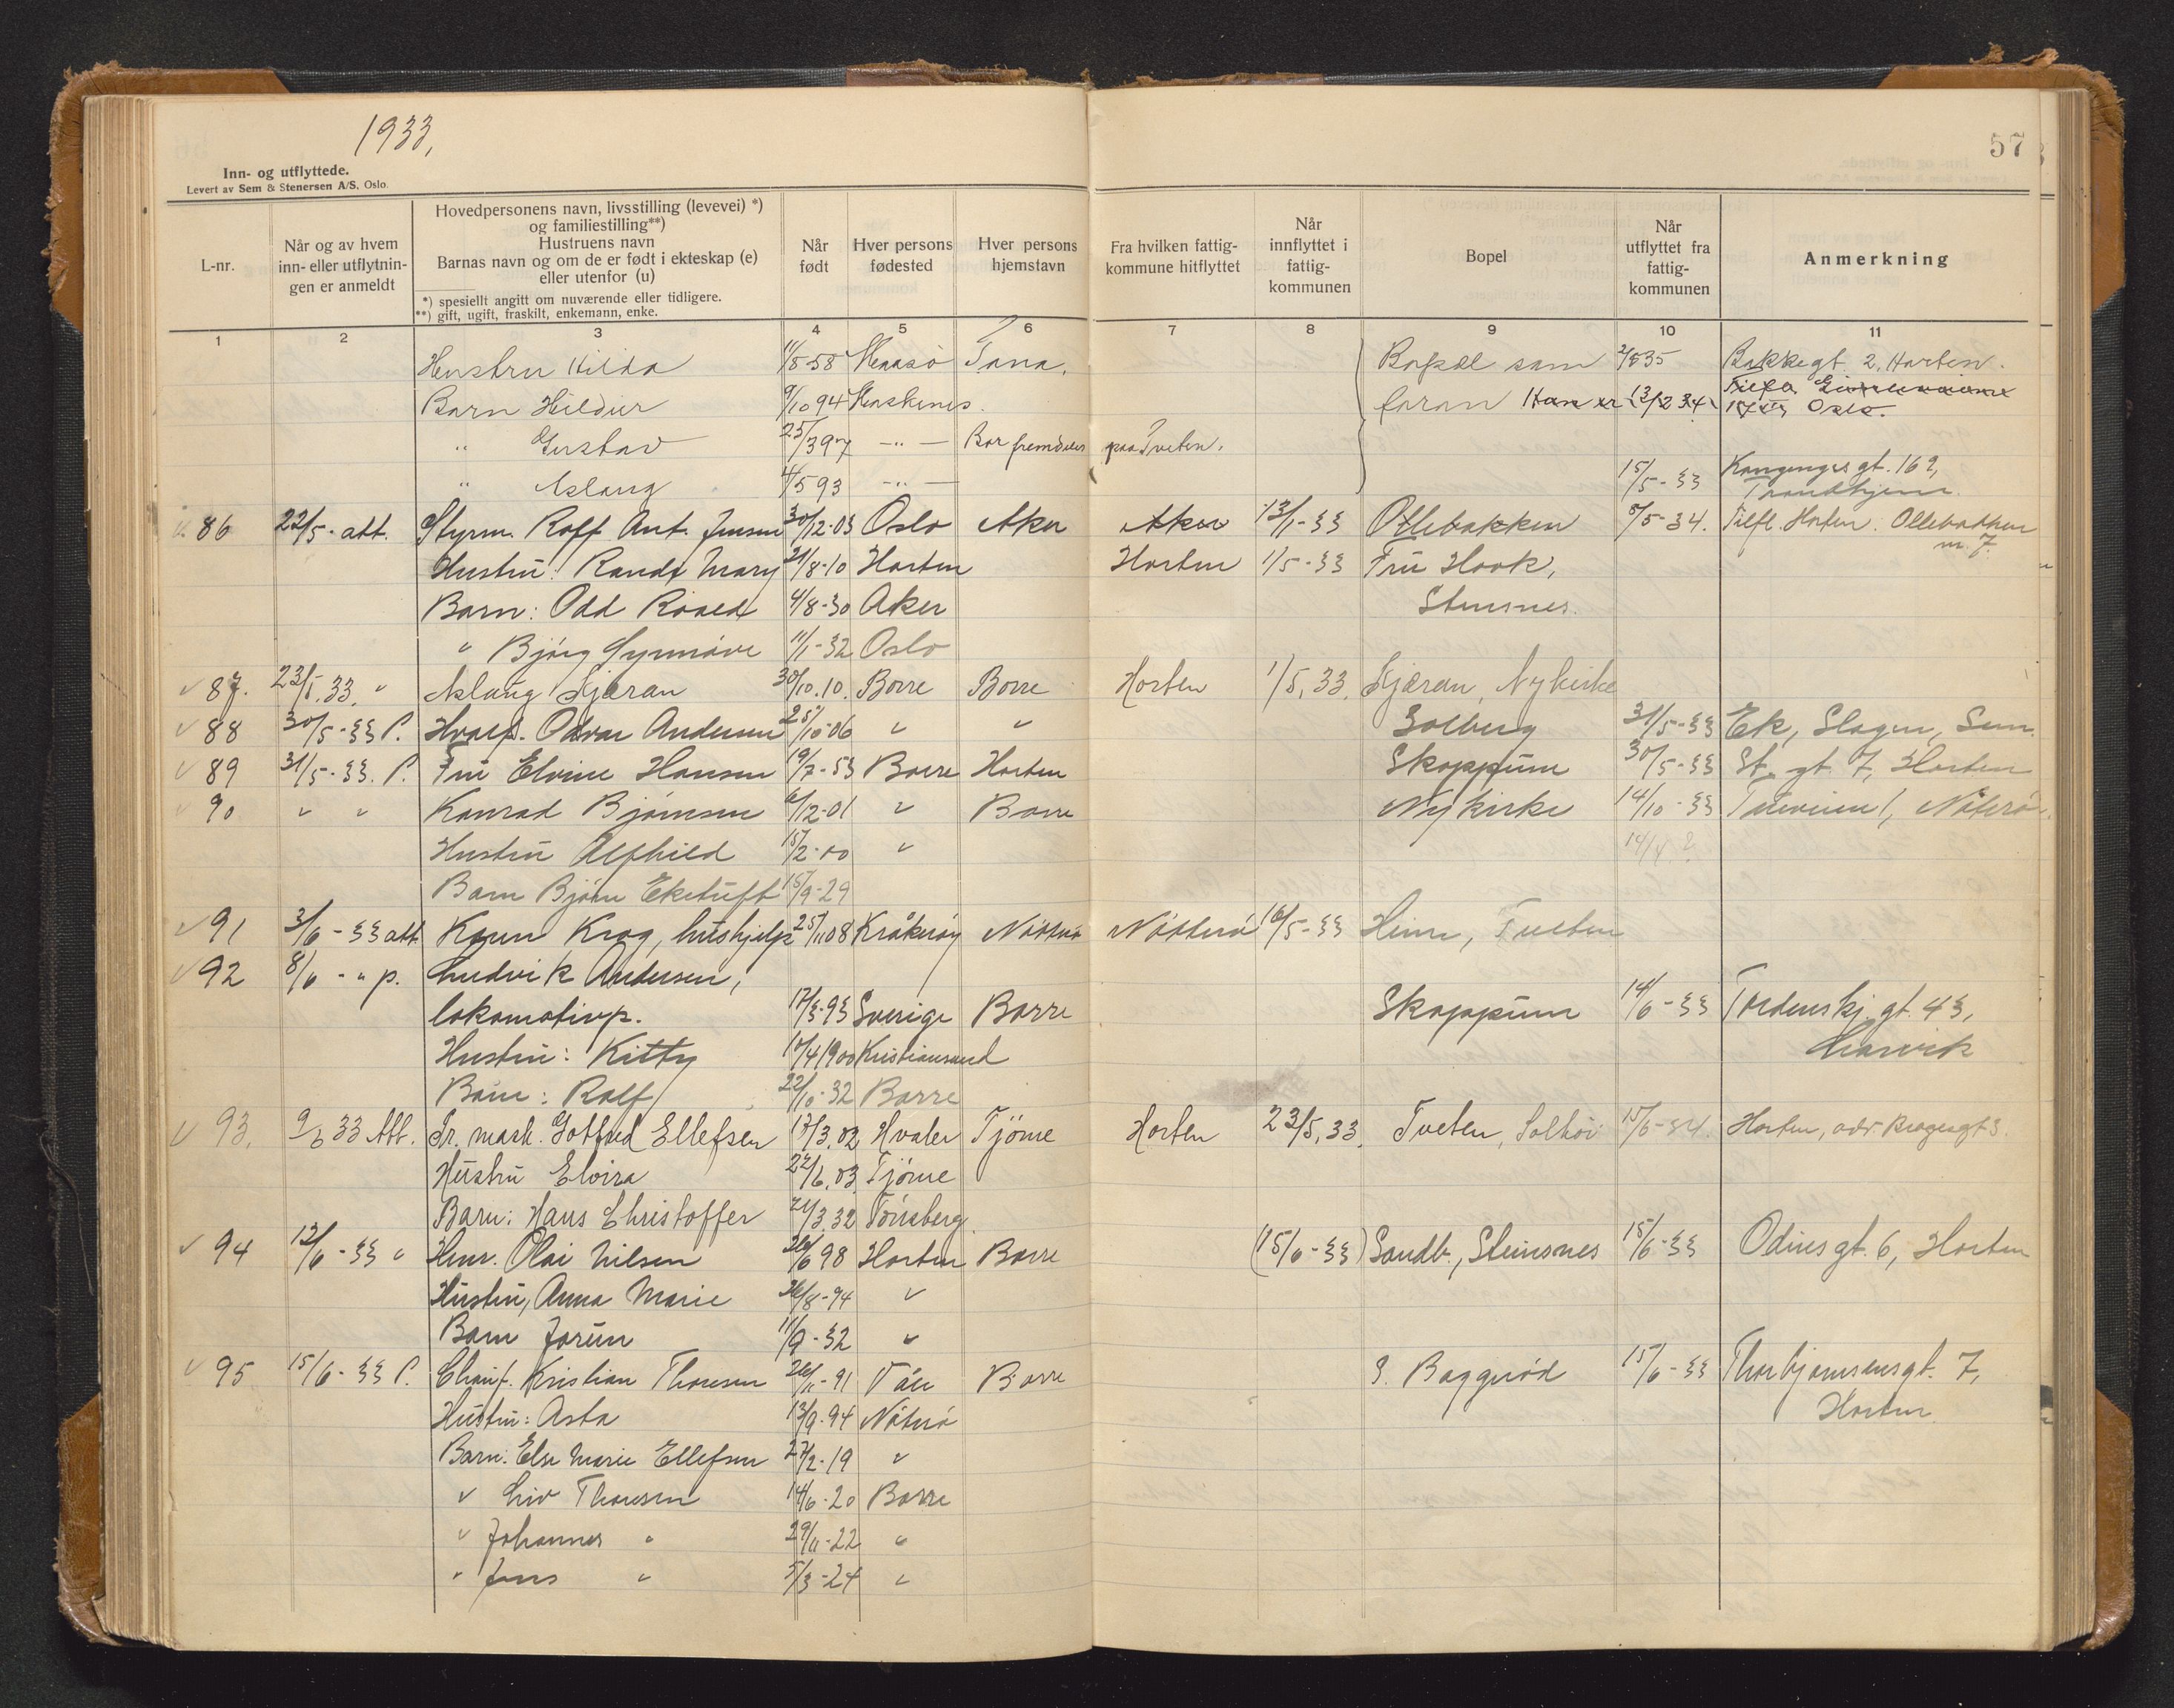 1933,
57
Inn- og utflyttede.
Levert av Sem & Stenersen A/S. Oslo.
L-nr.
Når og av hvem inn- eller utflytnin- gen er anmeldt
Hovedpersonens navn, livsstilling (levevei) *)
og familiestilling**)
Hustruens navn
Barnas navn og om de er født i ekteskap (e)
eller utenfor (u)
*) spesiellt angitt om nuværende eller tidligere.
**) gift, ugift, fraskilt, enkemann, enke.
Når født
Hver persons fødested
Hver persons hjemstavn
Fra hvilken fattig- kommune hitflyttet
Når innflyttet i fattig- kommunen
Bopel
Når utflyttet fra fattig- kommunen
Anmerkning
1 2 3 4 5 6 7 8 9 10 11
Hustru Hilda 11/8-58 Maasö Tana. Bopæl som 2/8 35 Bakkegt. 2, Horten.
Barn Hildur 9/10 94 foran Han er 13/2 34. Oslo.
" Gustav 25/3 97 -"- Bor fremdeles paa Tveten.
" Aslaug 4/5 93 -"- 15/5-33 Kongensgt. 162,
Trondhjem.
86 22/5- att. Styrm. Rolf Ant. Jensen 30/12-03 Oslo Aker Aker 13/1-33 Ollebakken 5/5-34. Tilfl. Horten. Ollebakken
nr. 7.
Hustru: Randi Mary 21/8-10 Horten Horten 1/5-33 Fru Hook,
Barn: Odd Roald 4/8-30 Aker Steinsnes.
" Bjørg Synnöve 11/1-32 Oslo
87. 23/5.33. " Aslaug Kjæran 30/10.10. Borre Borre Horten 1/5.33. Kjæran, Nykirke
88 30/5-33 P. Hvalf. Odvar Andersen 25/10-06 " " Solberg 31/5-33 Ek, Slagen, Sem.
89 31/5-33. P. Fru Elvine Hansen 19/7-53 Borre Horten Skoppum 30/5-33 St. gt. 7, Horten
90 " " Konrad Bjørnsen 6/12-01 " Borre Nykirke 14/10-33 1, Nøterö.
Hustru Alfhild 15/2-00 " 14/4?
Barn Bjørn Eketuft 15/9-29
91 3/6-33 att. Karen Krog, hushjelp 25/11 08 Kråkerøy Nötterö Nötterö 16/5-33 Heum, Tveten
92 8/6 - " p. Ludvik Andersen,
lokomotivp. 17/3-93 Sverige Borre Skoppum 14/6-33 Tordenskj. gt. 43,
Hustru: Kitty 10/4 1900 Kristiansund Larvik
Barn: Rolf 22/10-32 Borre
93. 9/6 33 Att. Tr. mask. Gotfred Ellefsen 17/3.02 Hvaler Tjöme Horten 23/5.33. Tveten, Solhöi 15/6-34. Horten, adr. Bragesgt 3.
Hustru Elvira 22/6.03 Tjöme
Barn: Hans Christoffer 21/3.32 Tönsberg
94 12/6-33 " Henr. Olai Nilsen 26/6 98 Horten Borre (15/6-33) Sandb., Steinsnes 15/6-33 Odinsgt. 6, Horten
Hustru, Anna Marie 26/8-94 "
Barn Jorun 11/9-32 "
95 15/6-33 P. Chauf. Kristian Thoresen 26/11-91 Våle Borre S. Baggerød 15/6-33 Thorbjørnsensgt. 7,
Hustru: Asta 13/9-94 Nöterö Horten
Barn: Else Marie Ellefsen 27/2-19 "
" Liv Thoresen 14/6-20 Borre
" Johannes " 29/11-22 "
" Jens " 5/3-24 "